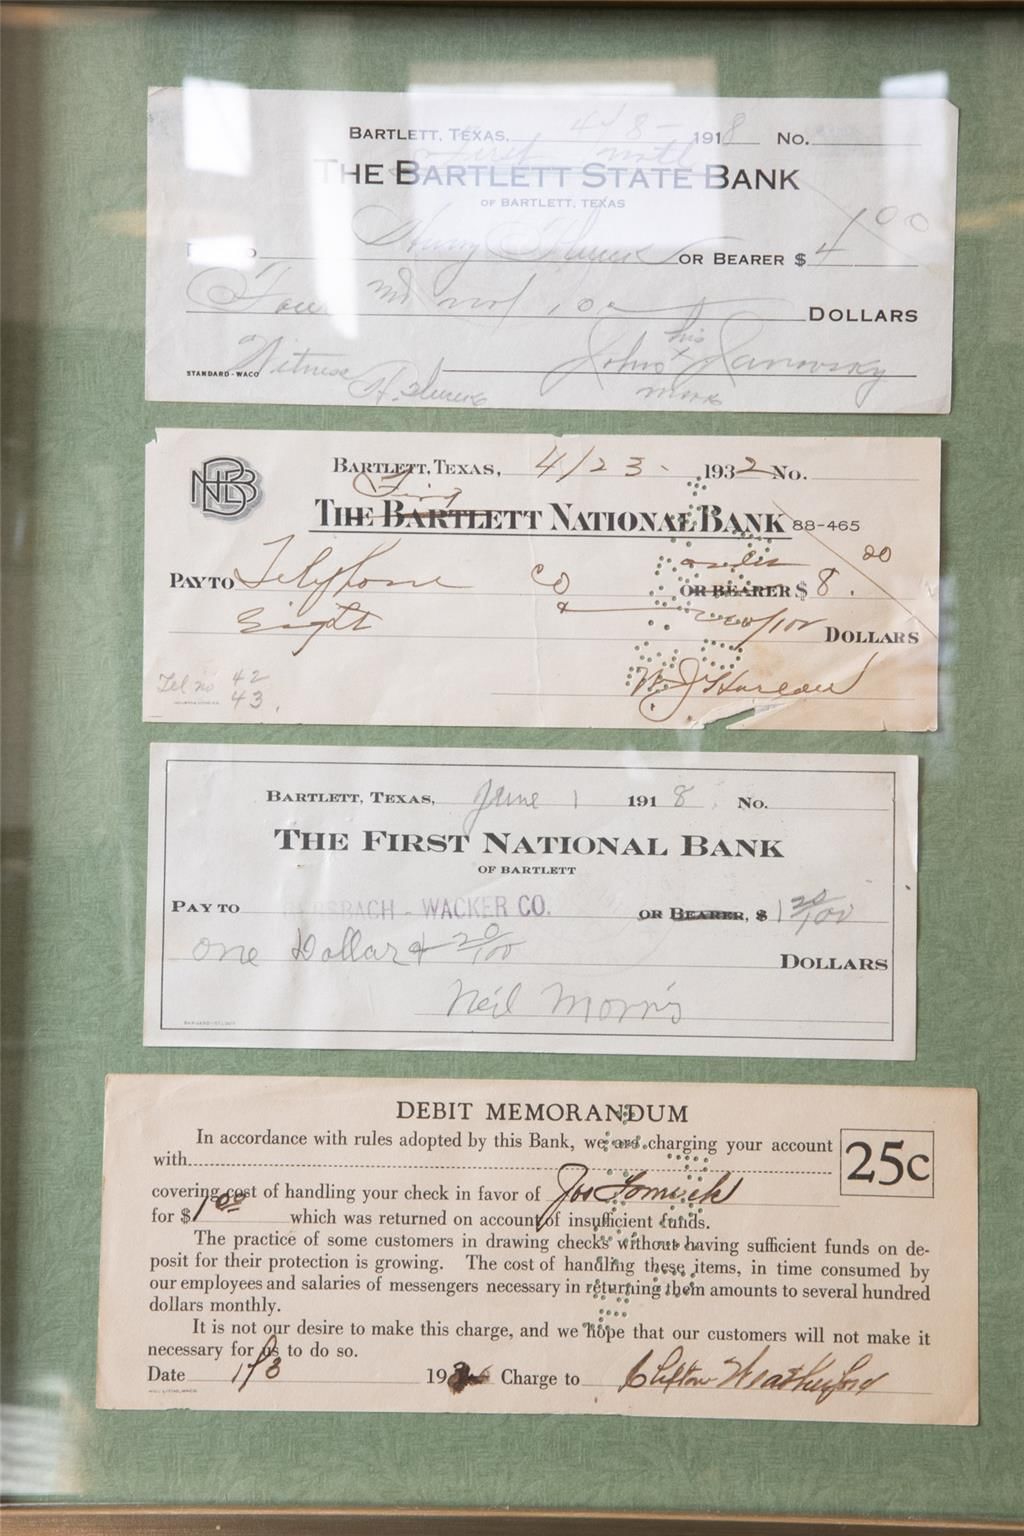 BARTLETT, TEXAS, 4/8- 1918 No.
First Natl
THE BARTLETT STATE BANK
OF BARTLETT, TEXAS
Harry OR BEARER $ 4 100
Four no/100 DOLLARS
his
John x Janovsky
mark
STANDARD-WACO Witness H.
NBB
BARTLETT, TEXAS, 4/23- 1932 No.
First
THE BARTLETT NATIONAL BANK 88-465
order
PAY TO Telephone Co OR BEARER $ 8.00
Eight & 00/100 DOLLARS
Tel no 42
43.
W J
BARTLETT, TEXAS, June 1 1918. No.
THE FIRST NATIONAL BANK
OF BARTLETT
PAY TO WACKER CO. OR BEARER, $ 1 20/100
One Dollar & 20/100 DOLLARS
Neil Morris
DEBIT MEMORANDUM
In accordance with rules adopted by this Bank, we are charging your account
with
25c
covering cost of handling your check in favor of Jos
for $ 1.00 which was returned on account of insufficient funds.
The practice of some customers in drawing checks without having sufficient funds on de-
posit for their protection is growing. The cost of handling these items, in time consumed by
our employees and salaries of messengers necessary in returning them amounts to several hundred
dollars monthly.
It is not our desire to make this charge, and we hope that our customers will not make it
necessary for us to do so.
Date 1/3 193 Charge to Clifton Weatherford